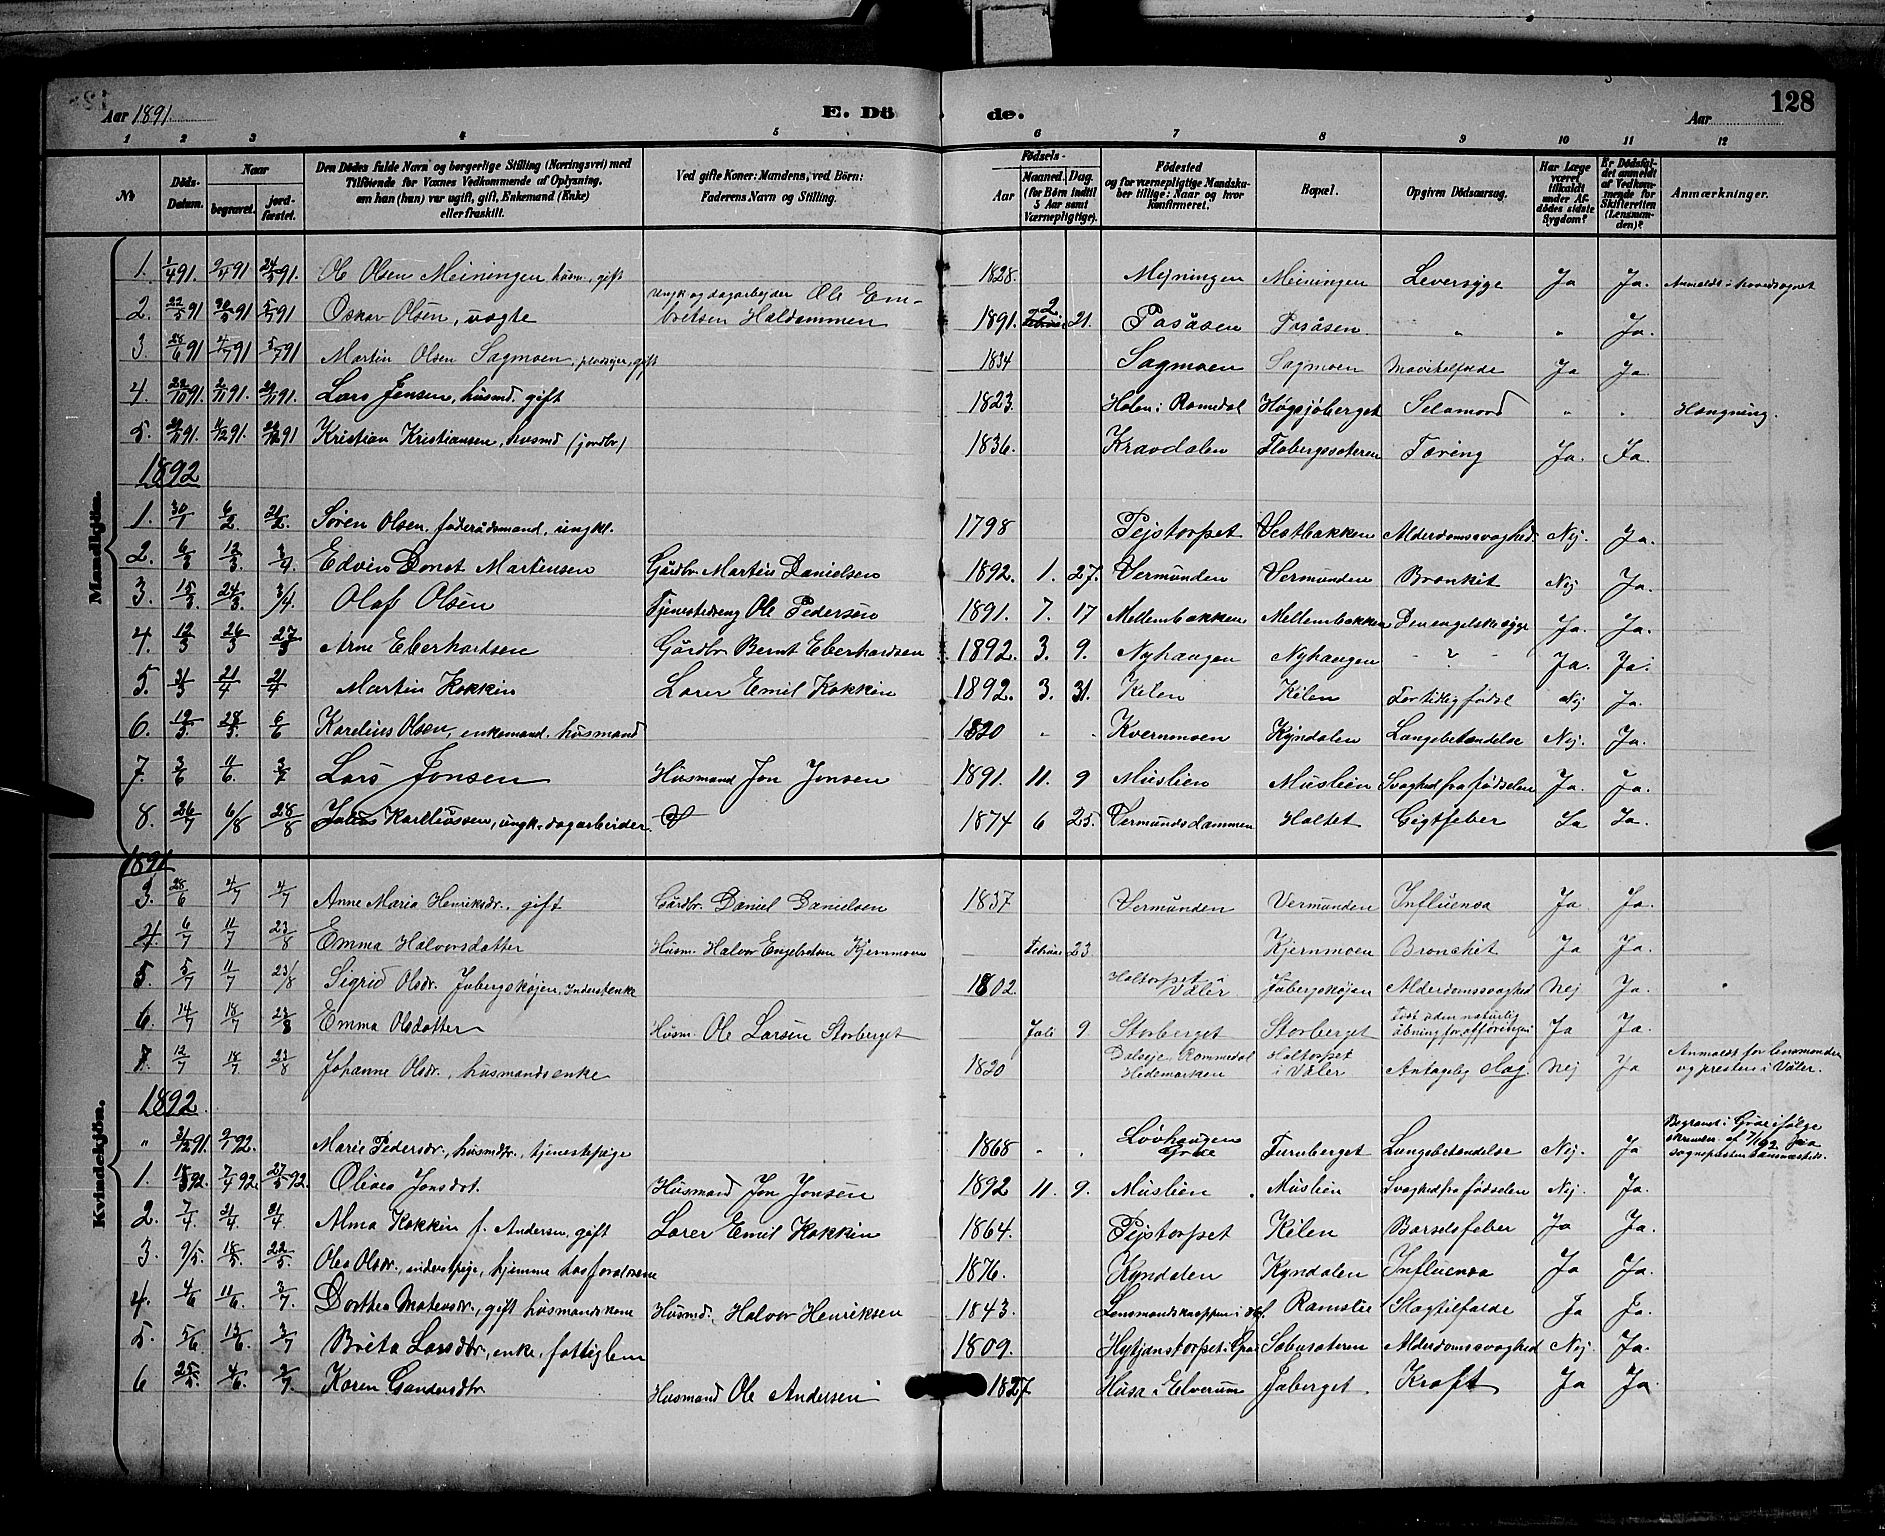 Aar 1891. E. Dö de. Aar 128
1 2 3 4 5 6 7 8 9 10 11 12
No Döds-Datum. Naar begravet. jord-fæstet. Den Dödes fulde Navn og borgerlige Stilling (Næringsvei) med Tilföiende for Voxnes Vedkommende af Oplysning, om han (hun) var ugift, gift, Enkemand (Enke) eller fraskilt. Ved gifte Koner: Mandens, ved Börn: Faderens Navn og Stilling. Födsels- Aar Maaned. Dag. (for Börn indtil 5 Aar samt Værnepligtige). Födested og for værnepligtige Mandska-ber tillige: Naar og hvor konfirmeret. Bopæl. Opgiven Dödsaarsag. Har Læge været tilkaldt under Af-dödes sidste Sygdom? Er Dödsfal-det anmeldt af Vedkom-mende for Skifteretten (Lensman-den)? Anmærkninger.
Mandkjön.
1. 1/4 91. 9/4 91 24/5 91. Ole Olsen Meiningen, husm., gift 1828. Mejningen Meiningen Leversyge Ja Ja. Anmeldt i hovedsognet
2. 22/5 91 30/5 91 5/7 91 Oskar Olsen, uægte Ungk og dagarbejder Ole Em-britsen Haldammen 1891. 2 21. Pasåsen Pasåsen " " Ja.
3. 28/6 91 4/7 91 5/7 91 Martin Olsen Sagmoen, gift 1834 Sagmoen Sagmoen Mavetilfælde Ja Ja.
4. 22/10 91. 2/11 91. 29/11 91. Lars Jensen, husmd. gift 1823. Holen i Romedal Høgsjøberget Selvmord " " Hængning.
5. 29/11 91. 4/12 91. 29/12 91 Kristian Kristiansen, husmd (jordbr) 1836. Kravdalen Flobergssæteren Tæring Ja. Ja.
1892
1. 30/1 6/2 21/2. Søren Olsen, føderådsmand, ungkl. 1798 Pejstorpet Vestbakken Alderdomssvaghed Nej. Ja.
2. 6/3 13/3 3/4. Edvin Donat Martinsen Gårdbr Martin Danielsen 1892. 1. 27. Vermunden Vermunden Bronkit Nej Ja.
3. 15/3. 24/3. 3/4. Olaf Olsen Tjenestedreng Ole Pedersen 1891. 7. 17 Mellembakken Mellembakken Den engelske syge Ja. Ja.
4. 19/3 26/3 27/3 Arne Eberhardsen Gårdbr Bernt Eberhardsen 1892. 3. 9. Nyhaugen Nyhaugen - ? - Ja. Ja.
5. 31/3 21/4 21/4 Martin Kokkin Lærer Emil Kokkin 1892. 3. 31. Kilen Kilen For tidlig født Nej Ja.
6. 19/5 28/5. 6/6 Karelius Olsen, enkemand, husmand 1820 " " Kvernmoen Kyndalen Lungebetændelse Nej. Ja.
7. 3/6 11/6. 3/7 Lars Jonsen Husmand Jon Jonsen 1891. 11. 9 Muslien Muslien Svaghed fra fødselen Ja. Ja.
8. 26/7 6/8 28/8 Julius Kareliussen, ungk. dagarbeider 1874 6 25. Vermundsdammen Haltet Gigtfeber Ja Ja.
Kvindekjön.
1891
3. 28/6 4/7 4/7 Anne Maria Henriksdr., gift Gårdbr. Daniel Danielsen 1837 Vermunden Vermunden Influensa Ja Ja.
4. 6/7 11/7 23/8 Emma Halvorsdatter Husm. Halvor Engebretsen Kjernmoen Februar 23. Kjernmoen Bronchit Ja Ja.
5. 5/7 11/7 23/8 Sigrid Olsdr. Jabergskøjen, Inderstenke 1802. Haltorpet i Våler Jabergskøjen Alderdomssvaghed Nej Ja.
6. 14/7 18/7 23/8 Emma Olsdatter Husm. Ole Larsen Storberget Juli 9 Storberget Storberget Født uden naturlig åbning for afføringen Ja Ja.
7. 12/7 18/7 23/8 Johanne Olsdr., husmandsenke 1820 Dalseje, Rommedal Hedemarken Haltorpet i Våler Antagelig slag. Nej Ja Anmeldt for lensmanden og presten i Våler.
1892.
" 31/12 91. 9/1 92. Marie Pedersdr., husmdtr., tjenestepige 1868 " " Løvhaugen Grue Furuberget Lungebetændelse Nej. Ja Begravet i Grue ifølge
1. 18/3 92. 7/4 92. 27/3 92. Olivea Jonsdat. Husmand Jon Jonsen 1892 11. 9. Muslien Muslien Svaghed fra fødselen Nej. Ja.
2. 7/4 21/4. 21/4. Alma Kokkin f. Andersen, gift Lærer Emil Kokkin 1864. Pejstorpet Kilen Barselfeber Ja Ja.
3. 9/5. 18/5 22/5. Olea Olsdr., inderstpige, hjemme hos forældrene 1876. Kyndalen Kyndalen Influensa Ja Ja.
4. 4/6 11/6. 3/7. Dorthea Matensdr., gift husmandskone Husmd. Halvor Henriksen 1843. Ramslie Slagtilfælde Ja Ja.
5. 5/6 13/6. 3/7 Brita Larsdtr., enke, fattiglem 1809. Alderdomssvaghed Nej. Ja.
6 25/5. 4/6. 3/7 Karen Gundersdtr Husmand Ole Andersen 1827 Husa i Elverum Jaberget. Kræft Ja Ja.